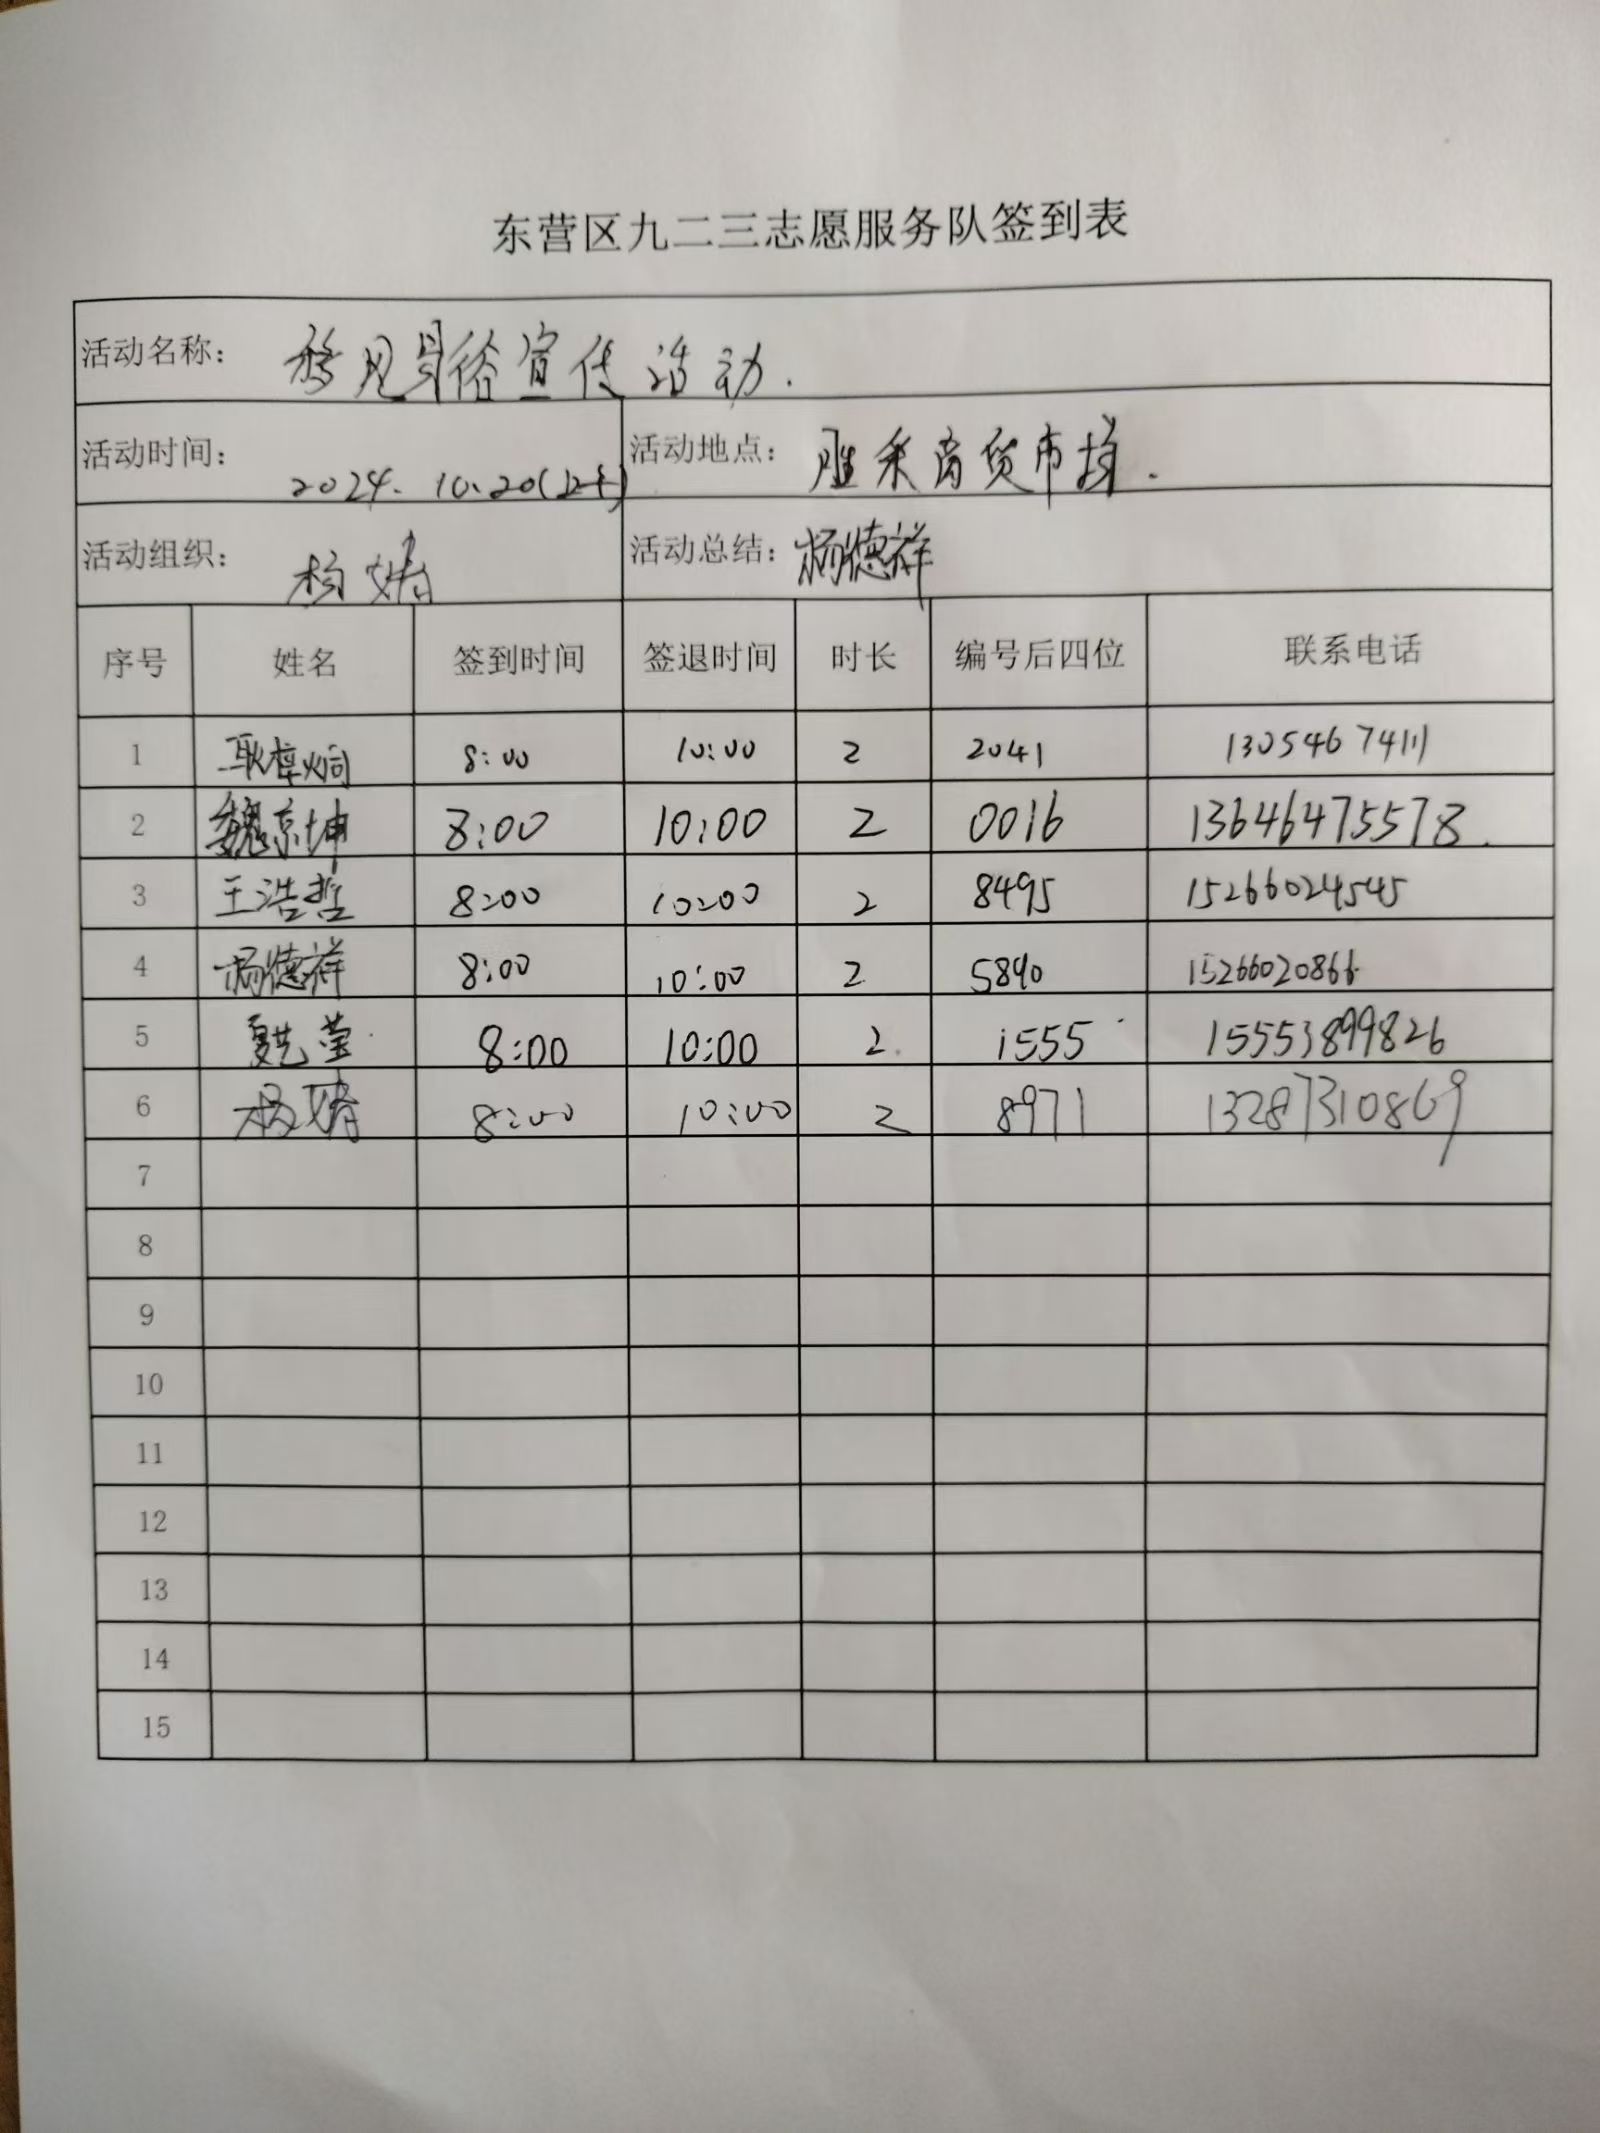 东营区九二三志愿服务队签到表
活动名称： 移风易俗宣传活动.
活动时间： 2024.10.20(上午) 活动地点： 胜采商货市场.
活动组织： 杨婧 活动总结： 杨德祥
序号 姓名 签到时间 签退时间 时长 编号后四位 联系电话
1 耿樟炯 8:00 10:00 2 2041 13054674111
2 魏京坤 8:00 10:00 2 0016 13646475578.
3 王浩哲 8:00 10:00 2 8495 15266024545
4 杨德祥 8:00 10:00 2 5890 15266020866
5 莹 8:00 10:00 2 1555 15553899826
6 杨婧 8:00 10:00 2 8971 13287310869
7
8
9
10
11
12
13
14
15